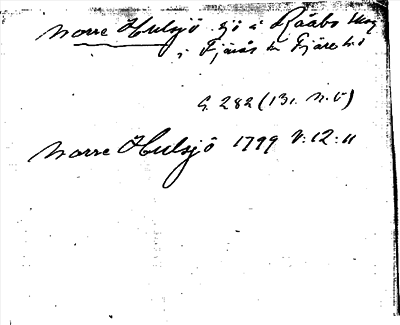 Norre Hulsjö sjö i Råabo skog
i Fjärås sn Fjäre hd
G. 282 (13i. n. v)
Norre Hulsjö 1799 V:12:11